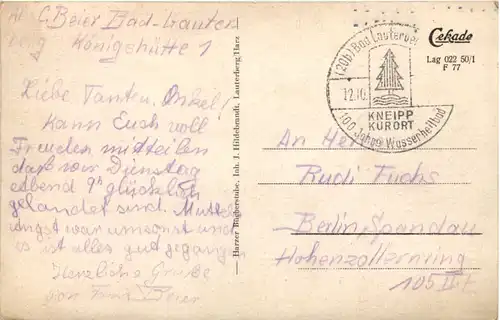 Abs. C. Beier Bad-Lauter
berg Königshütte 1
Liebe Tanten, Onkel!
Kann Euch voll
Freuden mitteilen
daß wir Dienstag
abend 9h glücklich
gelandet sind. Mutters
Angst war umsonst und
es ist alles gut gegangen
Herzliche Grüße
von Beier
Harzer Bücherstube, Inh. J. Hildebrandt, Lauterberg/Harz
(20b) Bad Lauterberg
12.10.
KNEIPP
KURORT
100 Jahre Wasserheilbad
Cekade
Lag 022 50/1
F 77
An Herrn
Rudi Fuchs
Berlin, Spandau
Hohenzollernring
105